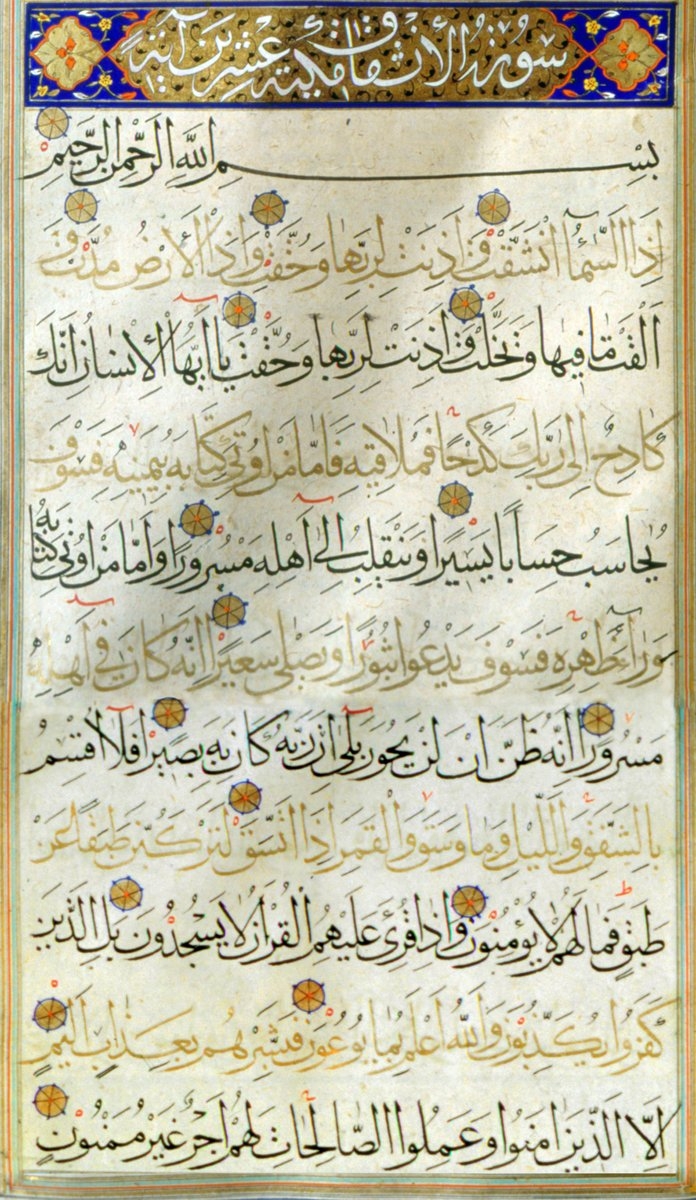 سورة الانشقاق مكية عشرين آية
بسم الله الرحمن الرحيم
اِذَا السَّمَآءُ انْشَقَّتْ وَاَذِنَتْ لِرَبِّهَا وَحُقَّتْ وَاِذَا الْاَرْضُ مُدَّتْ وَ
اَلْقَتْ مَا فِيهَا وَتَخَلَّتْ وَاَذِنَتْ لِرَبِّهَا وَحُقَّتْ يَا اَيُّهَا الْاِنْسَانُ اِنَّكَ
كَادِحٌ اِلٰى رَبِّكَ كَدْحًا فَمُلَاقِيهِ فَاَمَّا مَنْ اُوتِىَ كِتَابَهُ بِيَمِينِهِ فَسَوْفَ
يُحَاسَبُ حِسَابًا يَسِيرًا وَيَنْقَلِبُ اِلٰى اَهْلِهِ مَسْرُورًا وَاَمَّا مَنْ اُوتِىَ كِتَابَهُ
وَرَآءَ ظَهْرِهِ فَسَوْفَ يَدْعُوا ثُبُورًا وَيَصْلٰى سَعِيرًا اِنَّهُ كَانَ فِى اَهْلِهِ
مَسْرُورًا اِنَّهُ ظَنَّ اَنْ لَنْ يَحُورَ بَلٰى اِنَّ رَبَّهُ كَانَ بِهِ بَصِيرًا فَلَا اُقْسِمُ
بِالشَّفَقِ وَالَّيْلِ وَمَا وَسَقَ وَالْقَمَرِ اِذَا اتَّسَقَ لَتَرْكَبُنَّ طَبَقًا عَنْ
طَبَقٍ فَمَا لَهُمْ لَا يُؤْمِنُونَ وَاِذَا قُرِئَ عَلَيْهِمُ الْقُرْاٰنُ لَا يَسْجُدُونَ بَلِ الَّذِينَ
كَفَرُوا يُكَذِّبُونَ وَاللّٰهُ اَعْلَمُ بِمَا يُوعُونَ فَبَشِّرْهُمْ بِعَذَابٍ اَلِيمٍ
اِلَّا الَّذِينَ اٰمَنُوا وَعَمِلُوا الصَّالِحَاتِ لَهُمْ اَجْرٌ غَيْرُ مَمْنُونٍ